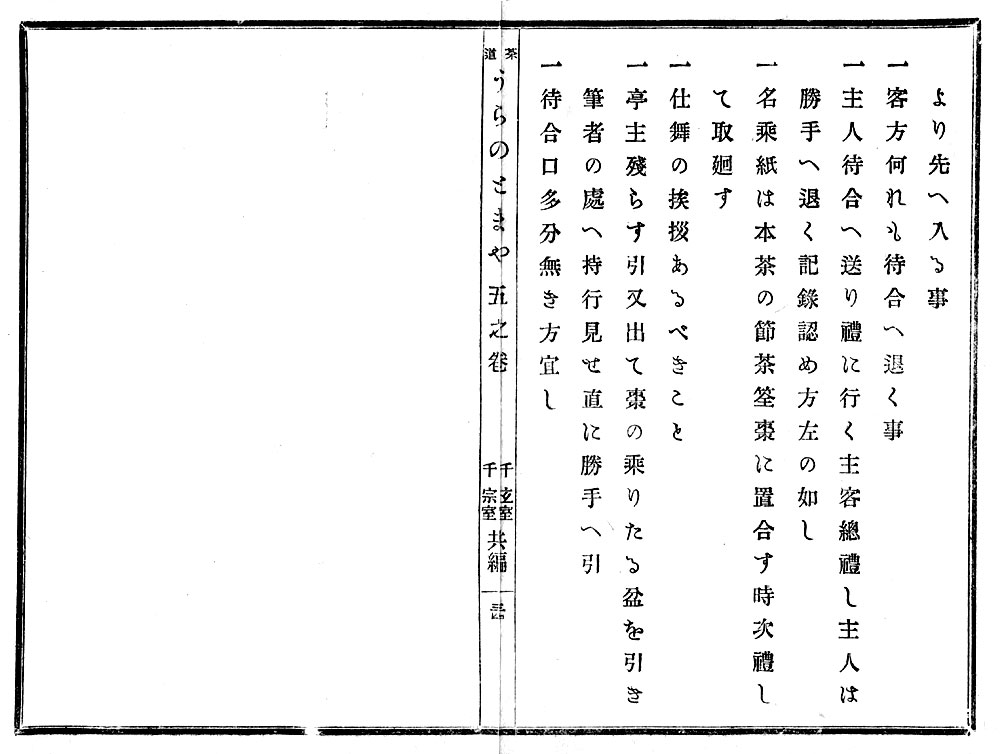 より先へ入る事
一客方何れも待合へ退く事
一主人待合へ送り禮に行く主客總禮し主人は
勝手へ退く記錄認め方左の如し
一名乘紙は本茶の節茶筌棗に置合す時次禮し
て取廻す
一仕舞の挨拶あるべきこと
一亭主殘らす引又出て棗の乘りたる盆を引き
筆者の處へ持行見せ直に勝手へ引
一待合口多分無き方宜し
茶道
うらのとまや 五之卷
千玄室
千宗室
共編